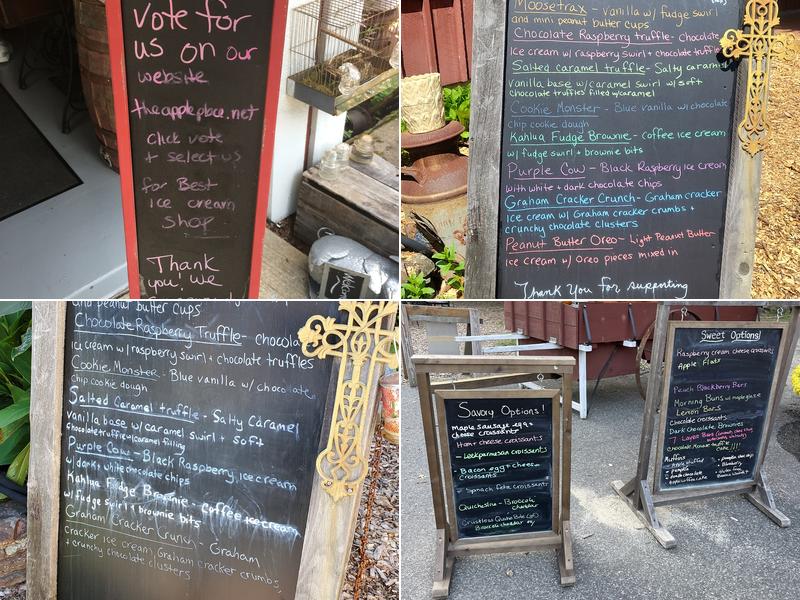 vote for
us on our
website
theappleplace.net
Click vote
+ select us
for Best
ice cream
Shop
Thank
you! we
Moosetrax - vanilla w/ fudge swirl
and mini peanut butter cups
Chocolate Raspberry truffle - chocolate
ice cream w/ raspberry swirl + chocolate truffles
Salted caramel truffle - Salty caramel
vanilla base w/ caramel swirl w/ soft
chocolate truffles filled w/ caramel
Cookie Monster - Blue vanilla w/ chocolate
chip cookie dough
Kahlua Fudge Brownie - coffee ice cream
w/ fudge swirl + brownie bits
Purple Cow - Black Raspberry ice cream
with white + dark chocolate chips
Graham Cracker Crunch - Graham cracker
ice cream w/ Graham cracker crumbs +
crunchy chocolate clusters
Peanut Butter Oreo - Light Peanut Butter
ice cream w/ Oreo pieces mixed in
Thank you for supporting
and peanut butter cups
Chocolate Raspberry Truffle - chocola
ice cream w/ raspberry swirl + chocolate truffles
Cookie Monster - Blue vanilla w/ chocolate
chip cookie dough
Salted Caramel truffle - Salty Caramel
vanilla base w/ caramel swirl + soft
chocolate truffle w/ caramel filling
Purple Cow - Black Raspberry ice cream
w/ dark + white chocolate chips
Kahlua Fudge Brownie - coffee ice cream
w/ fudge swirl + brownie bits
Graham Cracker Crunch - Graham
cracker ice cream, Graham cracker crumbs,
+ crunchy chocolate clusters
Savory Options!
Maple Sausage egg +
cheese croissant
Ham + cheese croissants
Bacon egg + cheese
croissants
Spinach feta croissants
Quiche - Broccoli
cheddar
Crustless Quiche Bite (GF)
Broccoli cheddar
Sweet Options!
Raspberry cream cheese croissants
Apple Flats
Peach Blackberry Bars
Morning Buns w/ maple glaze
Lemon Bars
Chocolate croissants
Dark Chocolate Brownies
7 Layer Bars
Chocolate mousse truffle
cake!!!
Muffins